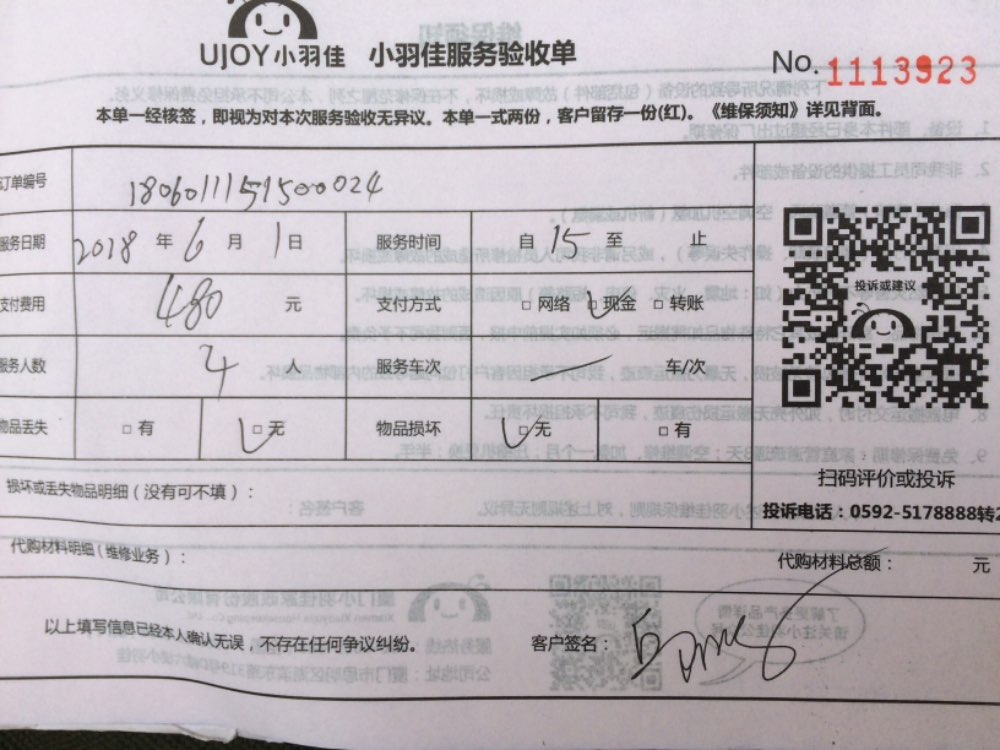 UJOY小羽佳 小羽佳服务验收单
No. 1113923
本单一经核签，即视为对本次服务验收无异议。本单一式两份，客户留存一份(红)。《维保须知》详见背面。
订单编号 1806011151500024
服务日期 2018 年 6 月 1 日 服务时间 自 15 至 止
投诉或建议
支付费用 480 元 支付方式 □网络 □现金 □转账
服务人数 4 人 服务车次 一 车/次
物品丢失 □有 □无 物品损坏 □无 □有
扫码评价或投诉
损坏或丢失物品明细（没有可不填）：
投诉电话：0592-5178888转2
代购材料明细（维修业务）：
代购材料总额： 元
以上填写信息已经本人确认无误，不存在任何争议纠纷。 客户签名：